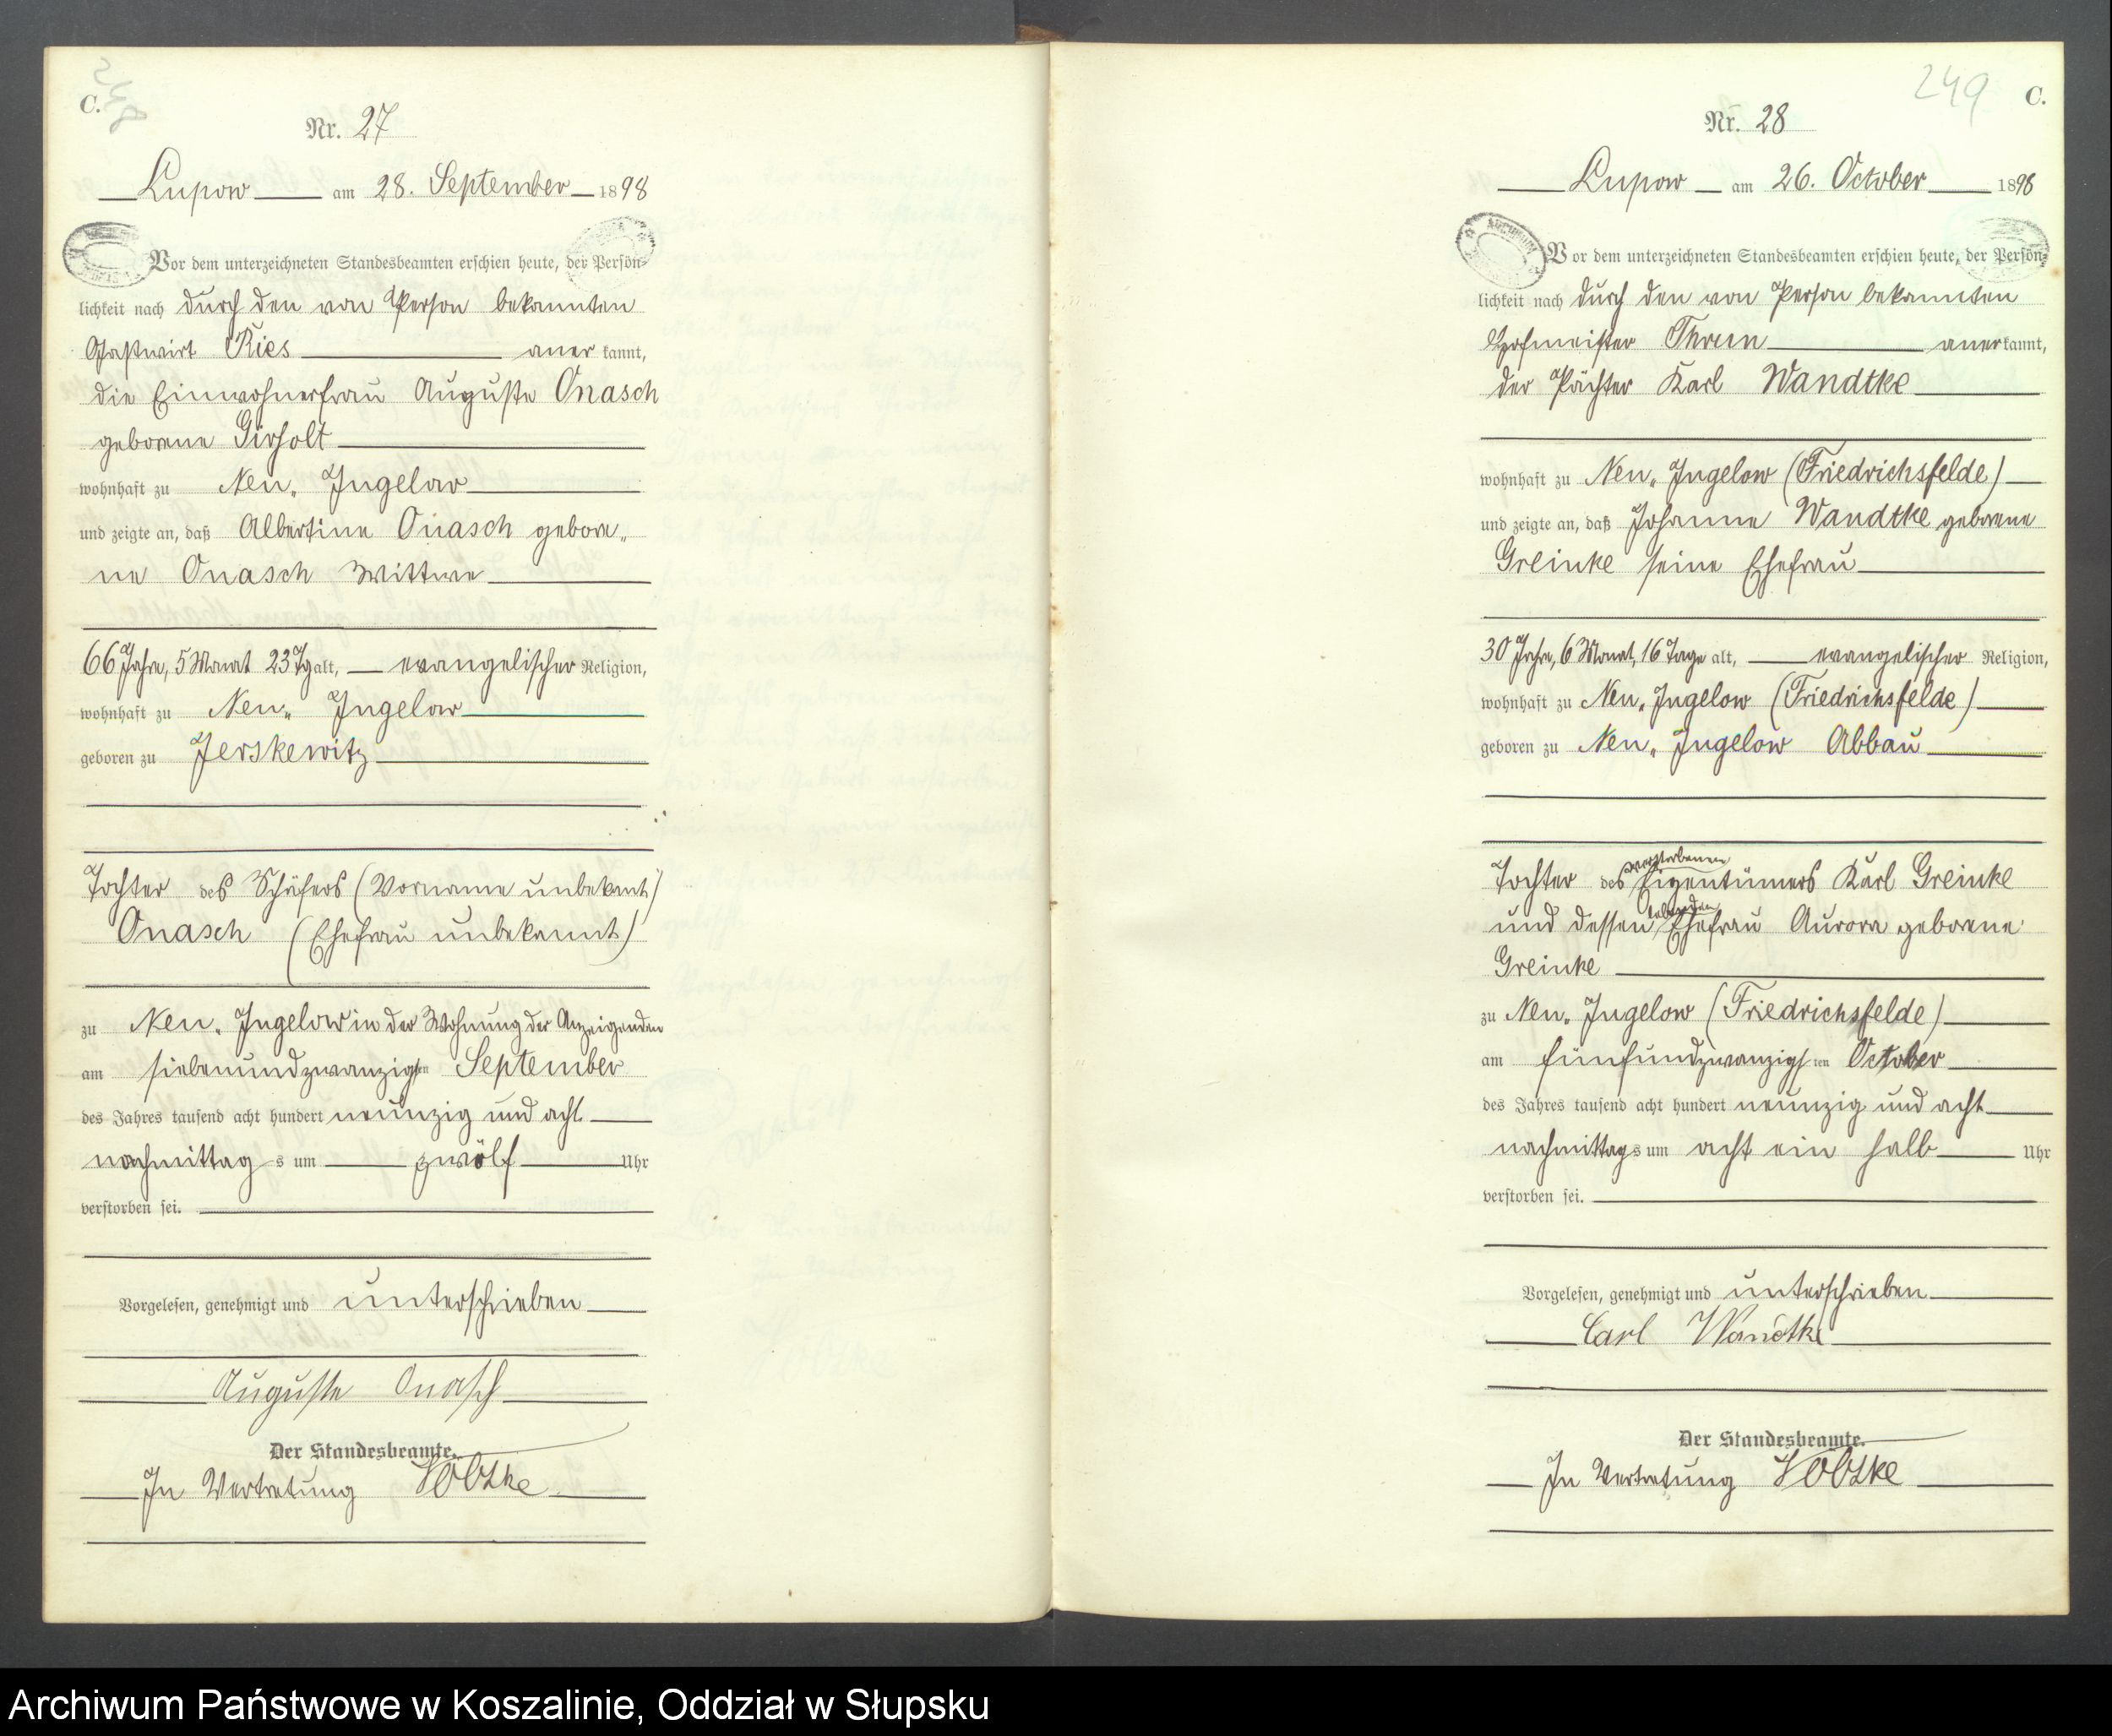 C.
Nr. 27
Lupow am 28. September 1898
Vor dem unterzeichneten Standesbeamten erschien heute, der Persön-
lichkeit nach durch den von Person bekannten
Gastwirt Ries anerkannt,
die Einwohnerfrau Auguste Onasch
geborene Girholt
wohnhaft zu Neu„ Jugelow
und zeigte an, daß Albertine Onasch gebore„
ne Onasch Wittwe
66 Jahre, 5 Monat 23 Tg alt, evangelischer Religion,
wohnhaft zu Neu„ Jugelow
geboren zu Jerskewitz
Tochter des Schäfers (Vorname unbekannt)
Onasch (Ehefrau unbekannt)
zu Neu„ Jugelow in der Wohnung der Anzeigenden
am siebenundzwanzigsten September
des Jahres tausend acht hundert neunzig und acht
nachmittags um zwölf Uhr
verstorben sei.
Vorgelesen, genehmigt und unterschrieben
Auguste Onasch
Der Standesbeamte.
In Vertretung
249 C.
Nr. 28
Lupow am 26. October 1898
Vor dem unterzeichneten Standesbeamten erschien heute, der Persön-
lichkeit nach durch den von Person bekannten
Hofmeister Thrun anerkannt,
der Pächter Karl Wandtke
wohnhaft zu Neu„ Jugelow (Friedrichsfelde)
und zeigte an, daß Johanne Wandtke geborene
Greinke seine Ehefrau
30 Jahre, 6 Monat, 16 Tage alt, evangelischer Religion,
wohnhaft zu Neu„ Jugelow (Friedrichsfelde)
geboren zu Neu„ Jugelow Abbau
verstorbenen
Tochter des Eigentümers Karl Greinke
lebenden
und dessen Ehefrau Aurora geborene
Greinke
zu Neu„ Jugelow (Friedrichsfelde)
am fünfundzwanzigsten October
des Jahres tausend acht hundert neunzig und acht
nachmittags um acht ein halb Uhr
verstorben sei.
Vorgelesen, genehmigt und unterschrieben
Carl Wandtke
Der Standesbeamte.
In Vertretung
Archiwum Państwowe w Koszalinie, Oddział w Słupsku